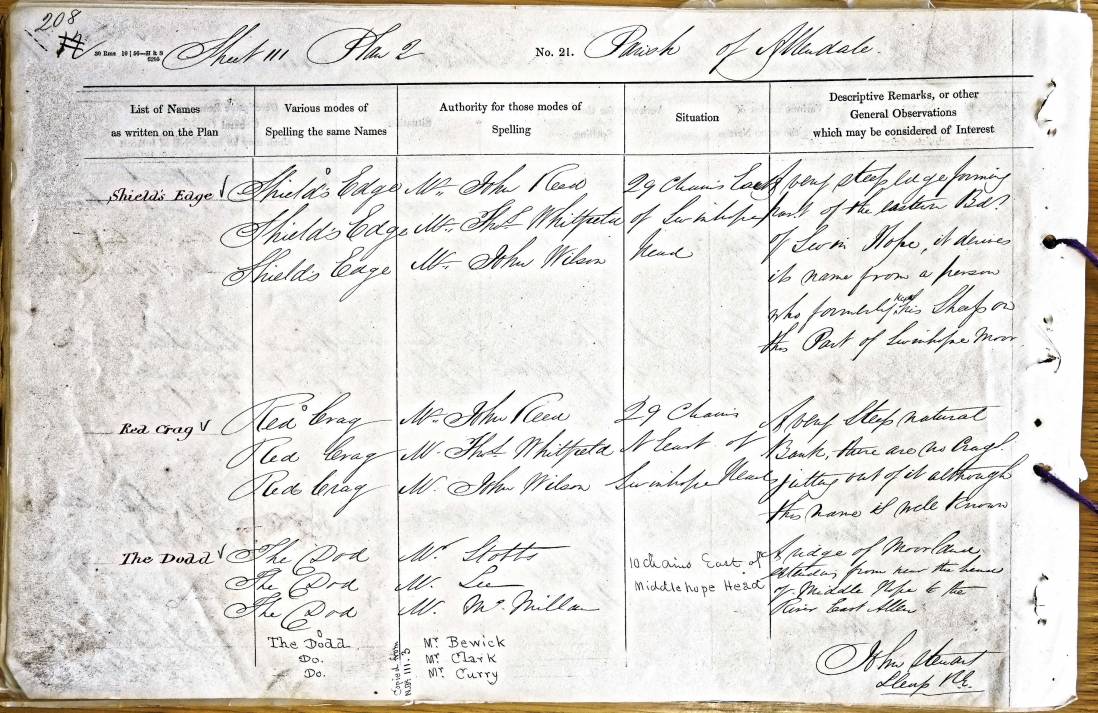 208
Sheet 111 Plan 2 No. 21. Parish of Allendale.
List of Names
as written on the Plan
Various modes of
Spelling the same Names
Authority for those modes of
Spelling
Situation
Descriptive Remarks, or other
General Observations
which may be considered of Interest
Shield's Edge
Shield's Edge
Shield's Edge
Shield's Edge
Mr. John Reed
Mr. Thos. Whitfield
Mr. John Wilson
29 Chains East
of Swinhope
Head
A very steep ledge forming
part of the eastern Bdy
of Swin Hope, it derives
its name from a person
who formerly kept his Sheep on
this Part of Swinhope Moor.
Red Crag
Red Crag
Red Crag
Red Crag
Mr. John Reed
Mr. Thos. Whitfield
Mr. John Wilson
29 Chains
N East of
Swinhope Head
A very Steep natural
Bank, there are no Crags
jutting out of it although
this name is well known
The Dodd
The Dod
The Dod
The Dod
The Dodd
Do.
Do.
Mr. Stotts
Mr. Lee
Mr. McMillan
Copied from
N.B. 111.3
Mr. Bewick
Mr. Clark
Mr. Curry
10 chains East of
Middlehope Head
A ridge of Moorland
extending from near the head
of Middle Hope to the
River East Allen
John Stewart